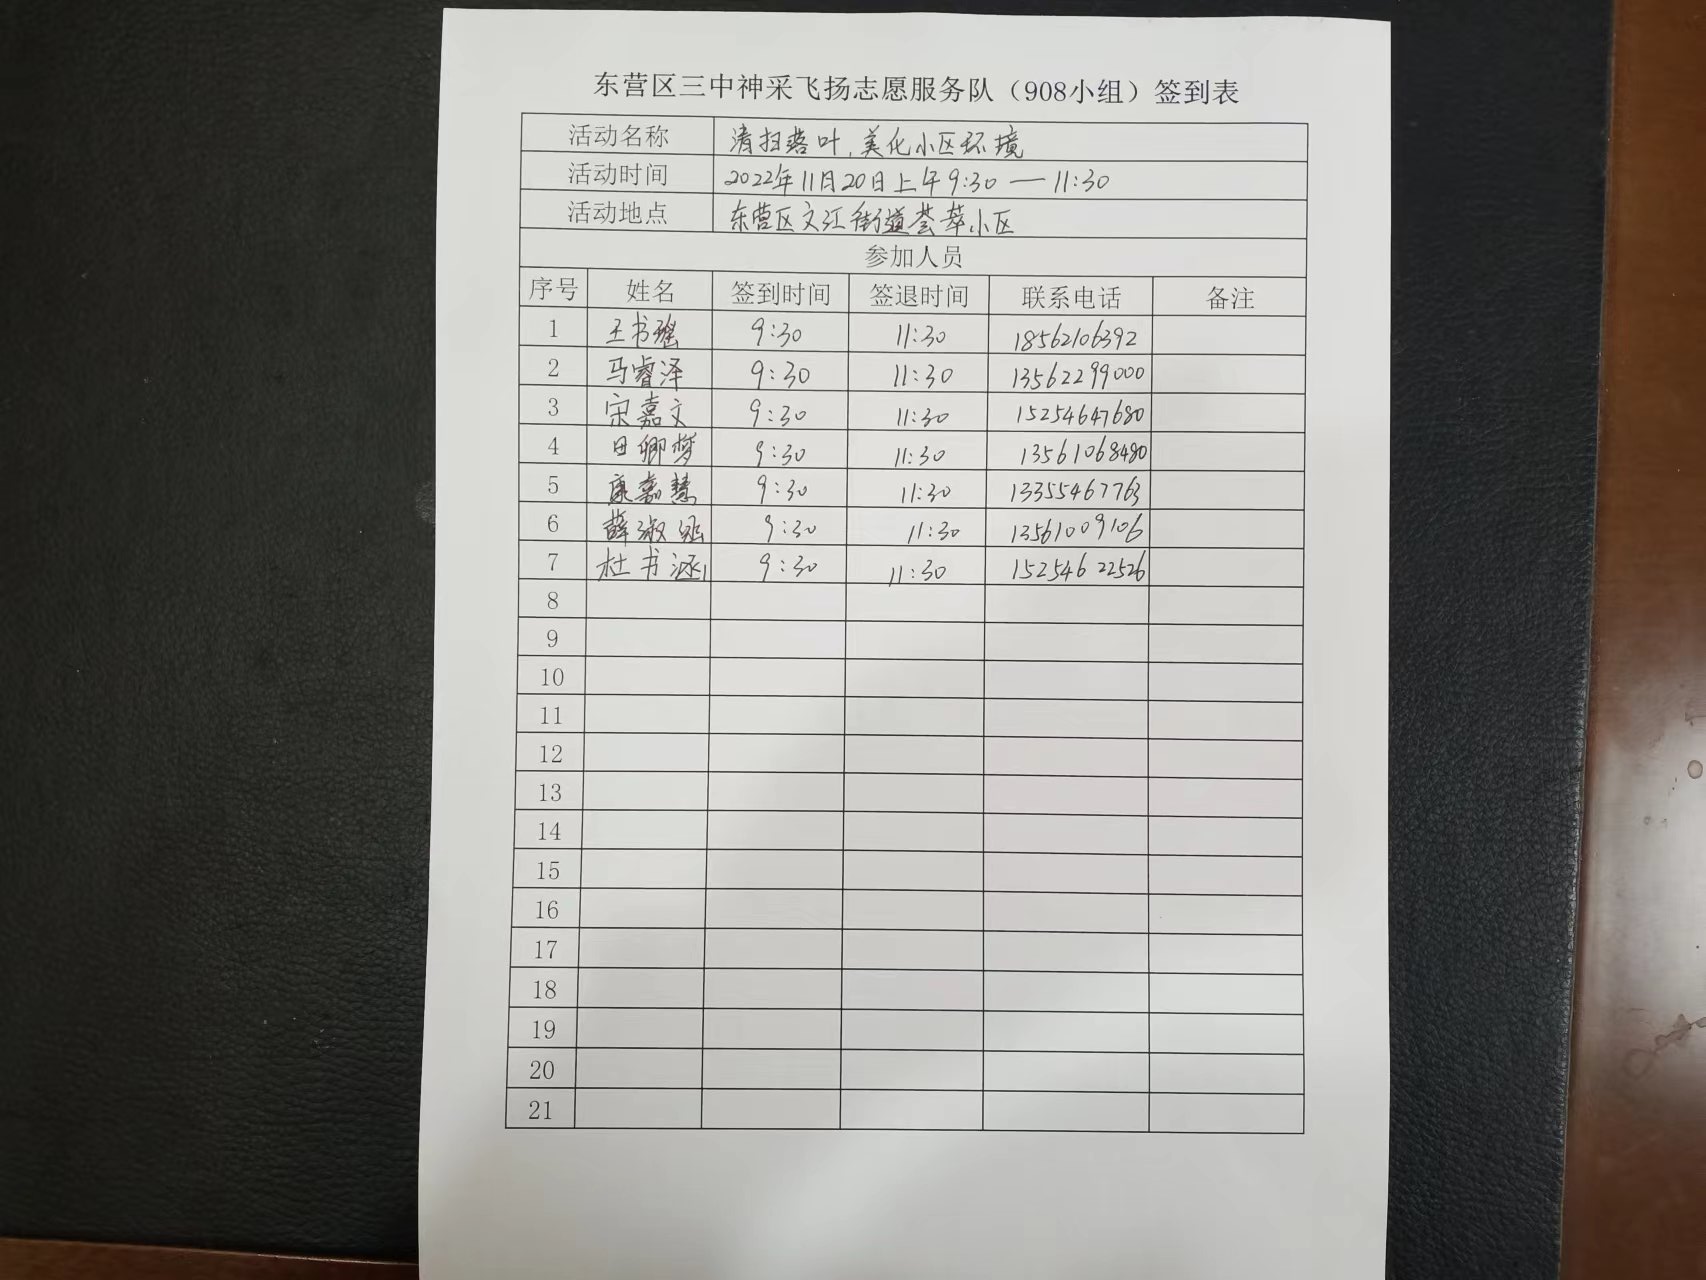 东营区三中神采飞扬志愿服务队（908小组）签到表
活动名称 清扫落叶，美化小区环境
活动时间 2022年11月20日上午9:30—11:30
活动地点 东营区文汇街道荟萃小区
参加人员
序号 姓名 签到时间 签退时间 联系电话 备注
1 王书瑶 9:30 11:30 18562106392
2 马睿泽 9:30 11:30 13562299000
3 宋嘉文 9:30 11:30 15254647680
4 田卿梦 9:30 11:30 13561068480
5 康嘉慧 9:30 11:30 13355467763
6 薛淑 9:30 11:30 13561009106
7 杜书涵 9:30 11:30 15254622526
8
9
10
11
12
13
14
15
16
17
18
19
20
21